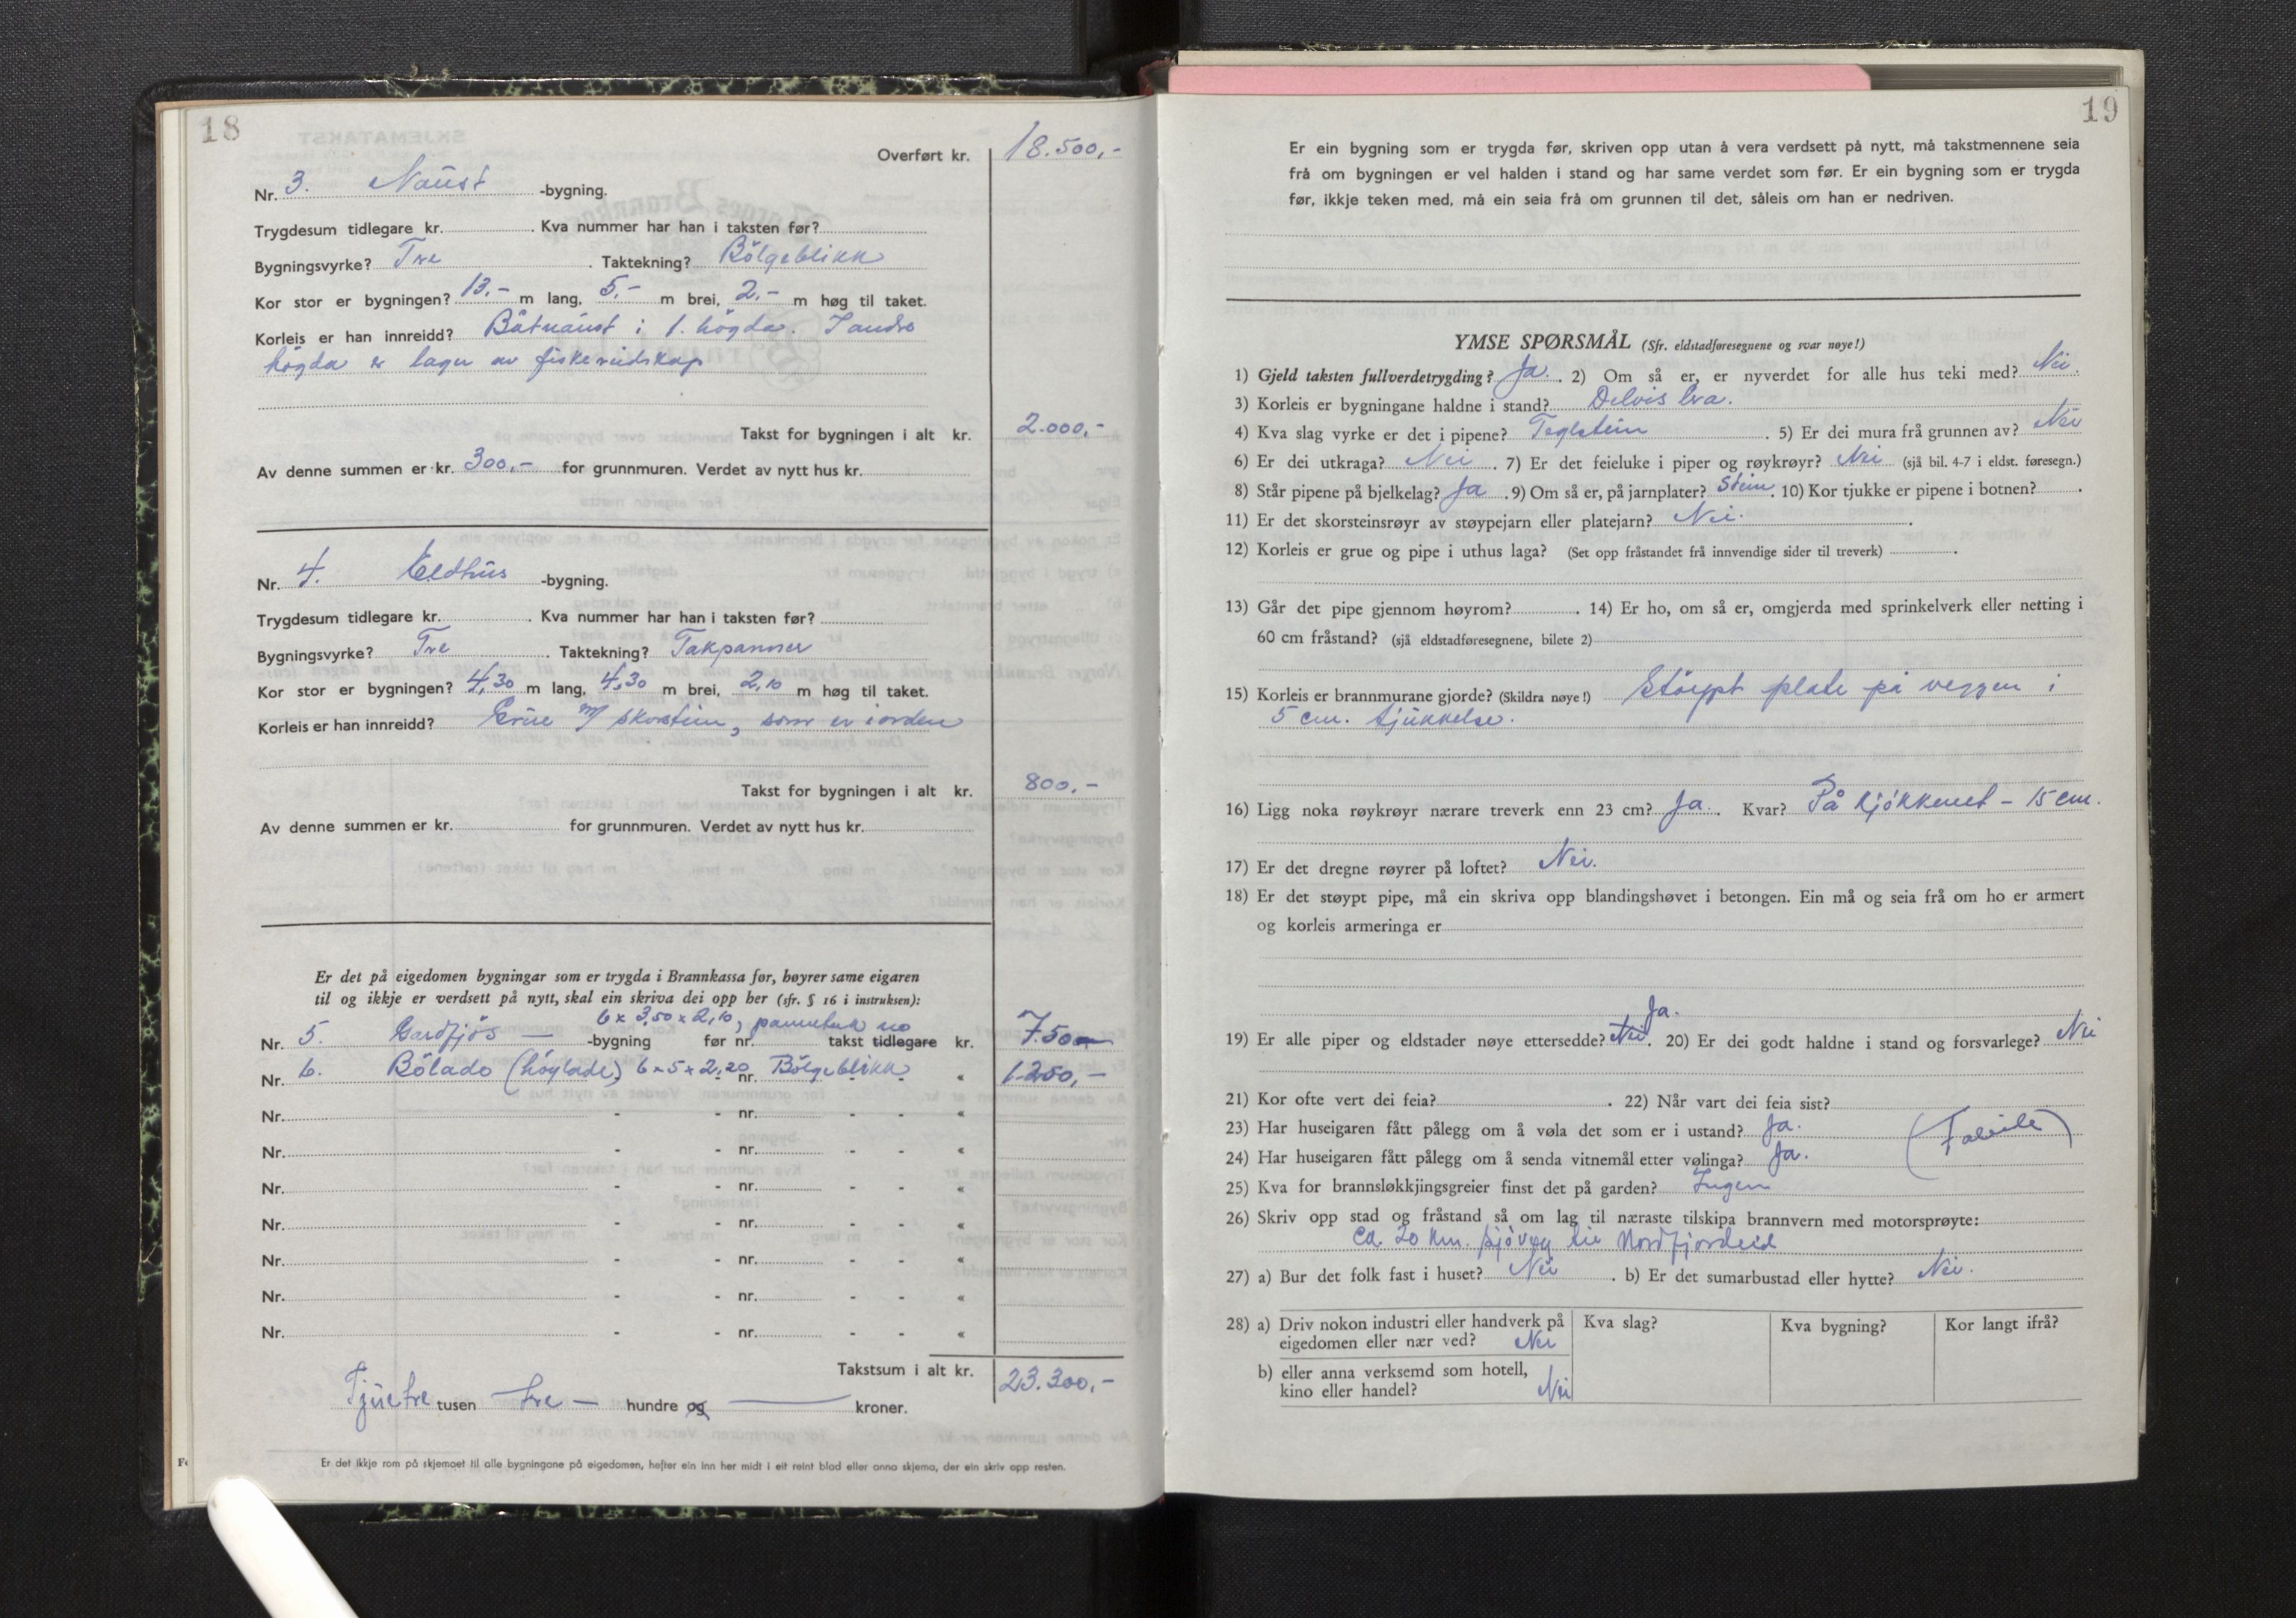 18
Overført kr. 18.500,-
Nr. 3. Naust -bygning.
Trygdesum tidlegare kr. Kva nummer har han i taksten før?
Bygningsvyrke? Tre . Taktekning? Bölgeblikk
Kor stor er bygningen? 13,- m lang, 5,- m brei, 2,- m høg til taket.
Korleis er han innreidd? Båtnaust i 1. högda. I andre
högda er lager av fiskereidskap
Takst for bygningen i alt kr. 2.000,-
Av denne summen er kr. 300,- for grunnmuren. Verdet av nytt hus kr.
Nr. 4. Eldhus -bygning.
Trygdesum tidlegare kr. Kva nummer har han i taksten før?
Bygningsvyrke? Tre . Taktekning? Takpanner
Kor stor er bygningen? 4,30 m lang, 4,30 m brei, 2,10 m høg til taket.
Korleis er han innreidd? Grue m/ skorstein, som er i orden
Takst for bygningen i alt kr. 800,-
Av denne summen er kr. for grunnmuren. Verdet av nytt hus kr.
Er det på eigedomen bygningar som er trygda i Brannkassa før, høyrer same eigaren
til og ikkje er verdsett på nytt, skal ein skriva dei opp her (sfr. § 16 i instruksen):
6 x 3,50 x 2,10, pannetak
Nr. 5. Gardfjös -bygning før nr. takst tidlegare kr. 750
Nr. 6. Bölado (höylade) 6 x 5 x 2,20 - nr. Bölgeblikk - - « 1.250,-
Nr. - - nr. - - «
Nr. - - nr. - - «
Nr. - - nr. - - «
Nr. - - nr. - - «
Nr. - - nr. - - «
Nr. - - nr. - - «
Nr. - - nr. - - «
Takstsum i alt kr. 23.300,-
Tjuetre tusen tre — hundre og — kroner.
Er det ikkje rom på skjemaet til alle bygningane på eigedomen, hefter ein inn her midt i eit reint blad eller anna skjema, der ein skriv opp resten.
19
Er ein bygning som er trygda før, skriven opp utan å vera verdsett på nytt, må takstmennene seia
frå om bygningen er vel halden i stand og har same verdet som før. Er ein bygning som er trygda
før, ikkje teken med, må ein seia frå om grunnen til det, såleis om han er nedriven.
YMSE SPØRSMÅL (Sfr. eldstadføresegnene og svar nøye!)
1) Gjeld taksten fullverdetrygding? Ja. . 2) Om så er, er nyverdet for alle hus teki med? Nei.
3) Korleis er bygningane haldne i stand? Delvis bra.
4) Kva slag vyrke er det i pipene? Teglstein . 5) Er dei mura frå grunnen av? Nei
6) Er dei utkraga? Nei . 7) Er det feieluke i piper og røykrøyr? Nei (sjå bil. 4-7 i eldst. føresegn.)
8) Står pipene på bjelkelag? Ja . 9) Om så er, på jarnplater? Stein. 10) Kor tjukke er pipene i botnen? .
11) Er det skorsteinsrøyr av støypejarn eller platejarn? Nei. .
12) Korleis er grue og pipe i uthus laga? (Set opp fråstandet frå innvendige sider til treverk) .
13) Går det pipe gjennom høyrom? . 14) Er ho, om så er, omgjerda med sprinkelverk eller netting i
60 cm fråstand? (sjå eldstadføresegnene, bilete 2)
15) Korleis er brannmurane gjorde? (Skildra nøye!) Stöypt plate på veggen i
5 cm. tjukkelse.
16) Ligg noka røykrøyr nærare treverk enn 23 cm? Ja. . Kvar? På kjökkenet - 15 cm.
17) Er det dregne røyrer på loftet? Nei.
18) Er det støypt pipe, må ein skriva opp blandingshøvet i betongen. Ein må og seia frå om ho er armert
og korleis armeringa er
Ja.
19) Er alle piper og eldstader nøye ettersedde? Nei. 20) Er dei godt haldne i stand og forsvarlege? Nei
21) Kor ofte vert dei feia? . 22) Når vart dei feia sist?
23) Har huseigaren fått pålegg om å vøla det som er i ustand? Ja.
24) Har huseigaren fått pålegg om å senda vitnemål etter vølinga? Ja.
25) Kva for brannsløkkjingsgreier finst det på garden? Ingen
26) Skriv opp stad og fråstand så om lag til næraste tilskipa brannvern med motorsprøyte:
Ca. 20 km. sjöveg til Nordfjordeid
27) a) Bur det folk fast i huset? Nei . b) Er det sumarbustad eller hytte? Nei.
28) a) Driv nokon industri eller handverk på Kva slag? Kva bygning? Kor langt ifrå?
eigedomen eller nær ved? Nei
b) eller anna verksemd som hotell,
kino eller handel? Nei